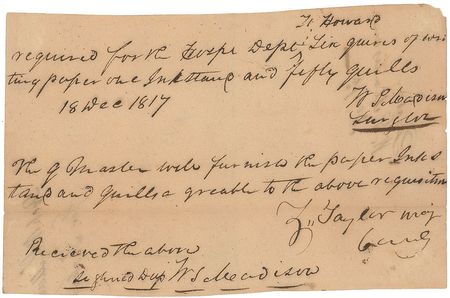 Ft Howard
required for the Hospl Dept Six quires of wri
ting paper one Inkstand and fifty quills
18 Dec 1817
W S Madison
Surgeon
The Q Master will furnish the paper Inks
tand and quills agreable to the above requisition
Z. Taylor maj
Comdg
Recieved the above
Signed Dup W S Madison